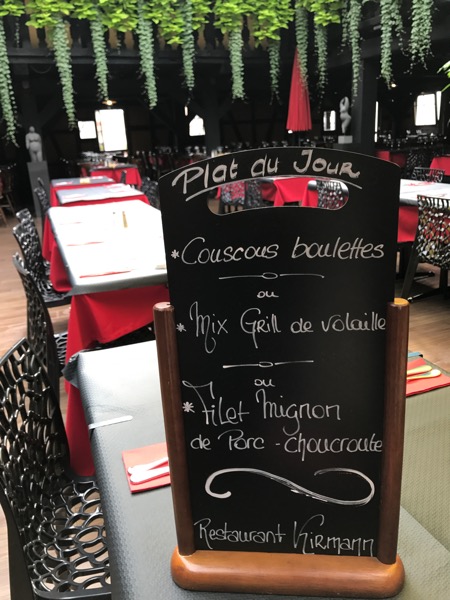 Plat du Jour
*Couscous boulettes
ou
*Mix Grill de volaille
ou
*Filet Mignon
de Porc - choucroute
Restaurant Kirmann